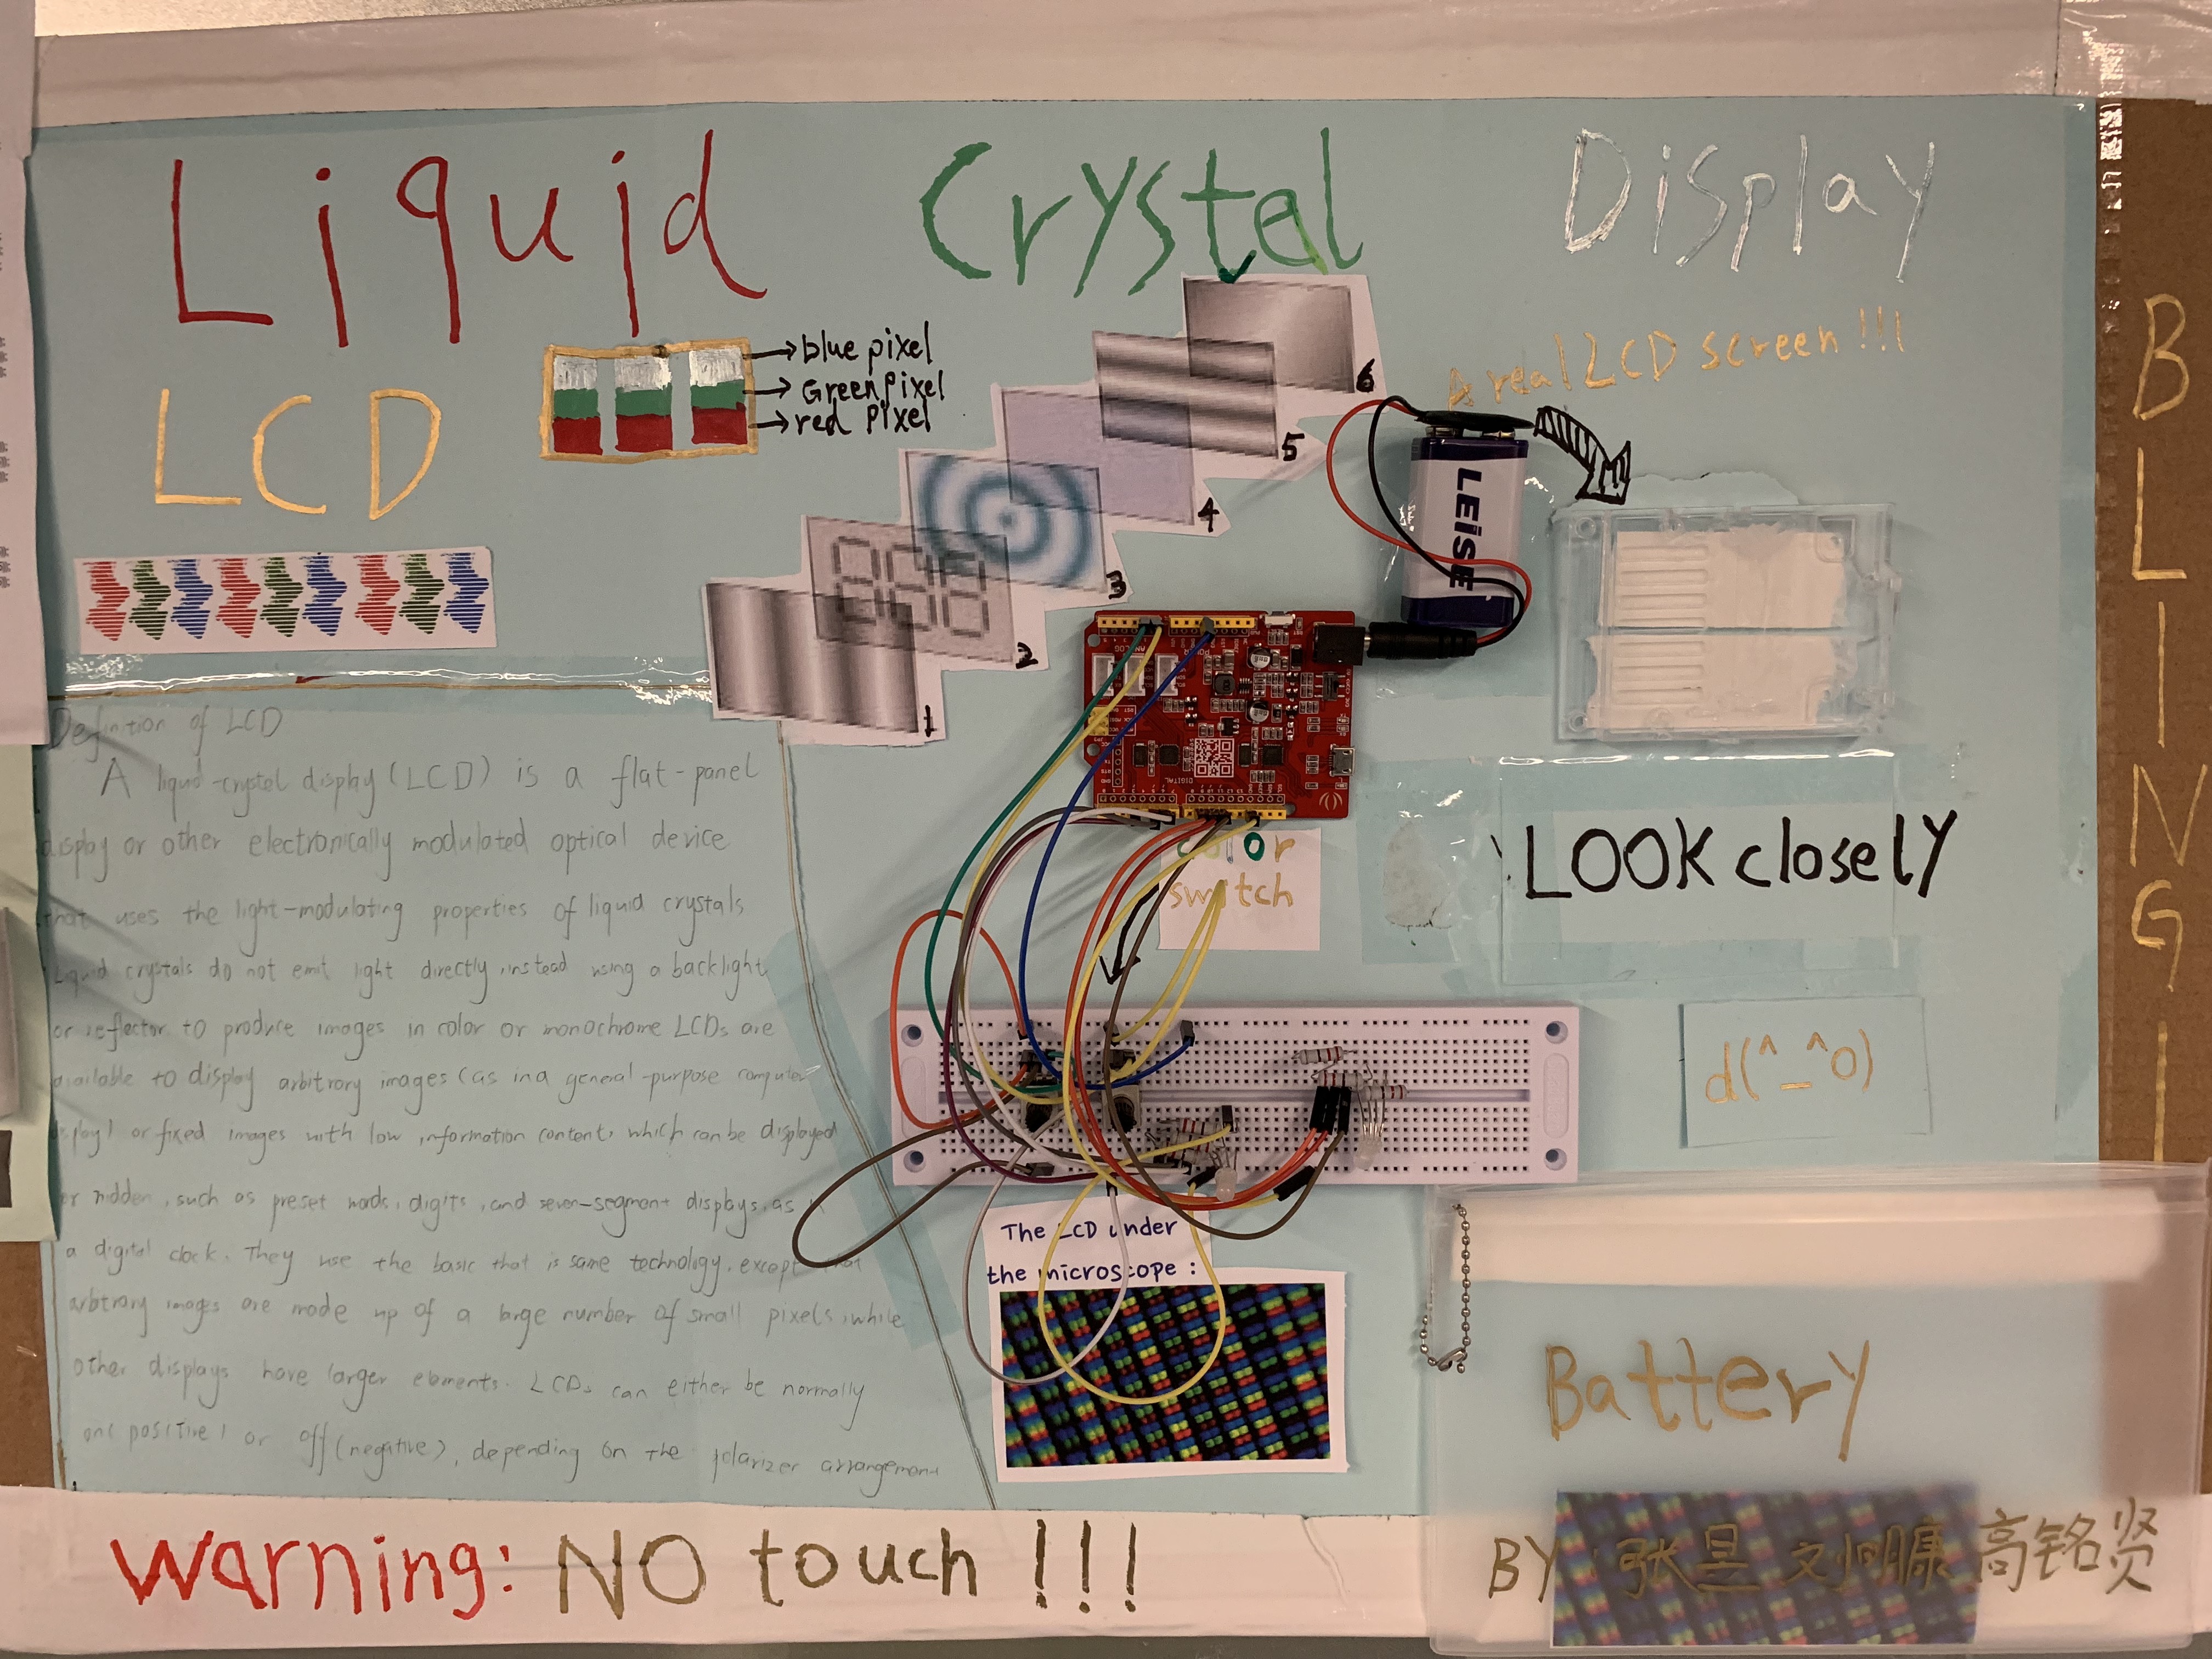 Liquid Crystal Display
LCD
blue pixel
Green pixel
red pixel
A real LCD screen !!!
1
2
3
4
5
6
LEISE
BLING!
Definition of LCD
A liquid-crystal display (LCD) is a flat-panel
display or other electronically modulated optical device
that uses the light-modulating properties of liquid crystals
Liquid crystals do not emit light directly, instead using a backlight
or reflector to produce images in color or monochrome LCDs are
available to display arbitrary images (as in a general-purpose computer
display) or fixed images with low information content, which can be displayed
or hidden, such as preset words, digits, and seven-segment displays, as
a digital clock. They use the basic that is same technology, except that
arbitrary images are made up of a large number of small pixels, while
other displays have larger elements. LCDs can either be normally
on (positive) or off (negative), depending on the polarizer arrangement
ANALOG
DIGITAL
color
switch
LOOK closely
d(^_^o)
The LCD under
the microscope :
Battery
Warning: NO touch !!!
BY 张昱 刘明康 高铭贤